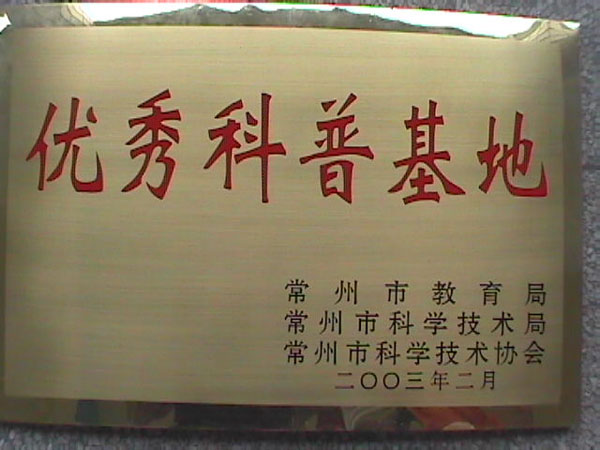 优秀科普基地
常州市教育局
常州市科学技术局
常州市科学技术协会
二〇〇三年二月